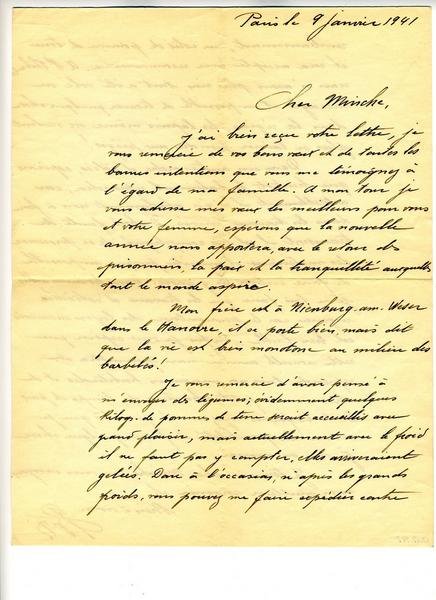 Paris le 9 janvier 1941
Cher Minsche,
J'ai bien reçue votre lettre, je
vous remercie de vos bons vœux et de toutes les
bonnes intentions que vous me témoignez à
l'égard de ma famille. A mon tour je
vous adresse mes vœux les meilleurs pour vous
et votre femme, espérons que la nouvelle
année nous apportera, avec le retour des
prisonniers, la paix et la tranquillité auxquelles
tout le monde aspire.
Mon frère est à Nienburg. am. Weser
dans le Hanovre, il se porte bien, mais dit
que la vie est bien monotone au milieu des
barbelés!
Je vous remercie d'avoir pensé à
m'envoyer des légumes; évidemment quelques
Kilogs. de pommes de terre serait accueillis avec
grand plaisir, mais actuellement avec le froid
il ne faut pas y compter, elles arriveraient
gelées. Donc à l'occasion, si après les grands
froids, vous pouvez me faire expédier contre